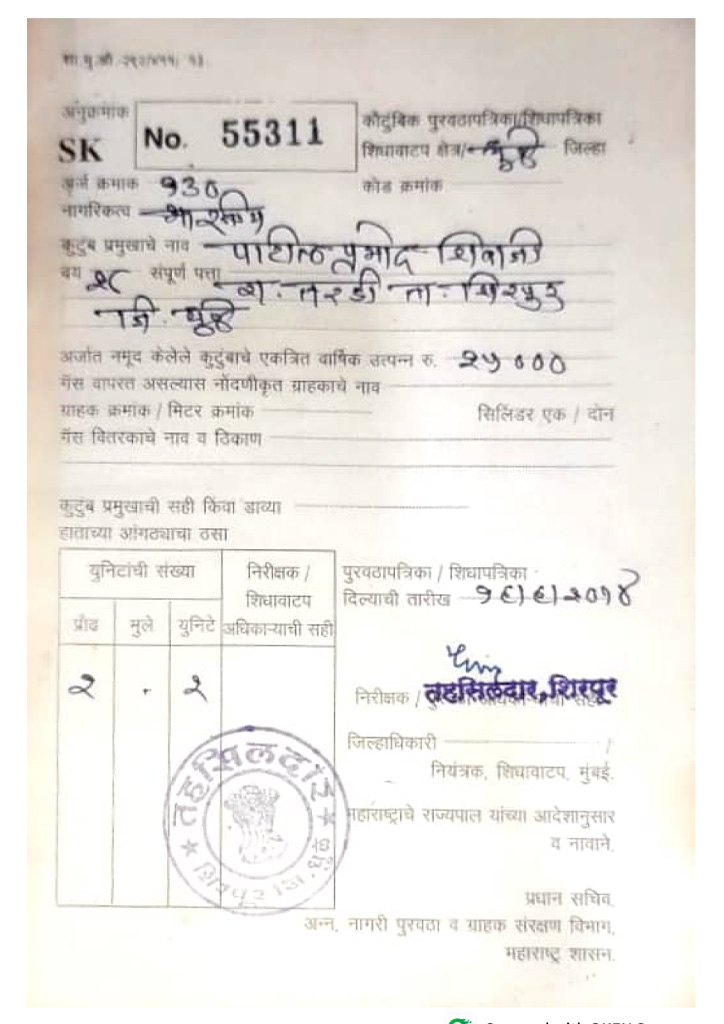 शा.मु.औ.
अनुक्रमांक
SK
No. 55311
कौटुंबिक पुरवठापत्रिका/शिधापत्रिका
शिधावाटप क्षेत्र/ धुळे जिल्हा
अर्ज क्रमांक 930
कोड क्रमांक
नागरिकत्व भारतीय
कुटुंब प्रमुखाचे नाव पाटील प्रमोद शिवाजी
वय २८ संपूर्ण पत्ता रा. तरडी ता. शिरपुर
जि. धुळे
अर्जात नमूद केलेले कुटुंबाचे एकत्रित वार्षिक उत्पन्न रु. २५०००
गॅस वापरत असल्यास नोंदणीकृत ग्राहकाचे नाव
ग्राहक क्रमांक / मिटर क्रमांक सिलिंडर एक / दोन
गॅस वितरकाचे नाव व ठिकाण
कुटुंब प्रमुखाची सही किंवा डाव्या
हाताच्या आंगठ्याचा ठसा
युनिटांची संख्या
निरीक्षक /
शिधावाटप
अधिकाऱ्याची सही
प्रौढ मुले युनिटे
२ . २
पुरवठापत्रिका / शिधापत्रिका
दिल्याची तारीख १६/६/२०१४
तहसिलदार, शिरपूर
निरीक्षक /
जिल्हाधिकारी /
नियंत्रक, शिधावाटप, मुंबई.
तहसिलदार
शिरपूर जि. धुळे
महाराष्ट्राचे राज्यपाल यांच्या आदेशानुसार
व नावाने.
प्रधान सचिव,
अन्न, नागरी पुरवठा व ग्राहक संरक्षण विभाग,
महाराष्ट्र शासन.